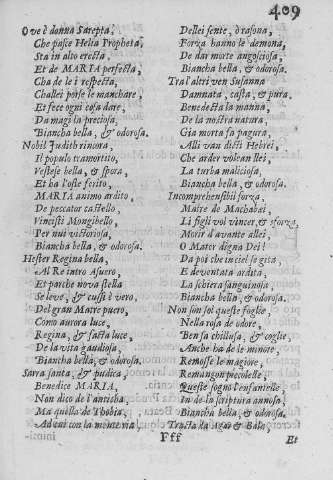 409
Ove è donna Sarepta,
Che pasce Helia Propheta,
Sta in alto erecta,
Et de MARIA perfecta,
Cha de le i respecta,
Challei porse le manchare,
Et fece ogni cosa dare,
Da magi la preciosa,
Biancha bella, & odorosa.
Nobil Judith rincora,
Il populo tramortito,
Vestese bella, & spora,
Et ha l'oste ferito,
MARIA animo ardito,
De peccator castello,
Vincisti Mongibello,
Per nui victoriosa,
Biancha bella, & odorosa.
Hester Regina bella,
Al Re intrò Asuero,
Et parche nova stella
Se leve, & cussi è vero,
Del gran Matre puero,
Como aurora luce,
Regina, & facta luce,
De la vita gaudiosa,
Biancha bella, & odorosa.
Sarra santa, & pudica,
Benedice MARIA,
Non dico de l'anticha,
Ma quella de Thobia,
Ad cui con la monte ria,
Dellei sente, ò rasona,
Forza hanno le demona,
De dar morte angosciosa,
Biancha bella, & odorosa.
Tra l'altri ven Susanna
Damnata, casta, & pura,
Benedecta la manna,
De la nostra natura,
Gia morta fa pagura,
Alli van dicti Hebrei,
Che arder volean llei,
La turba maliciosa,
Biancha bella, & odorosa.
Incomprehensibil forza,
Maire de Machabei,
Li figli vol vincer, & sforza,
Morir d'avante allei.
O Mater digna Dei!
Da poi che in ciel se gisa,
E deventata ardita,
La schiera sanguinosa,
Biancha bella, & odorosa.
Non son sol queste foglie,
Nella rosa de odore,
Ben sa chillusa, & coglie,
Anche ha de le minore,
Remosse le magiore,
Remangon piccolelle,
Queste sogno l'enfantelle
In de la scriptura annosa,
Biancha bella, & odorosa.
Tracta la Agar & Bala,
Fff
Et